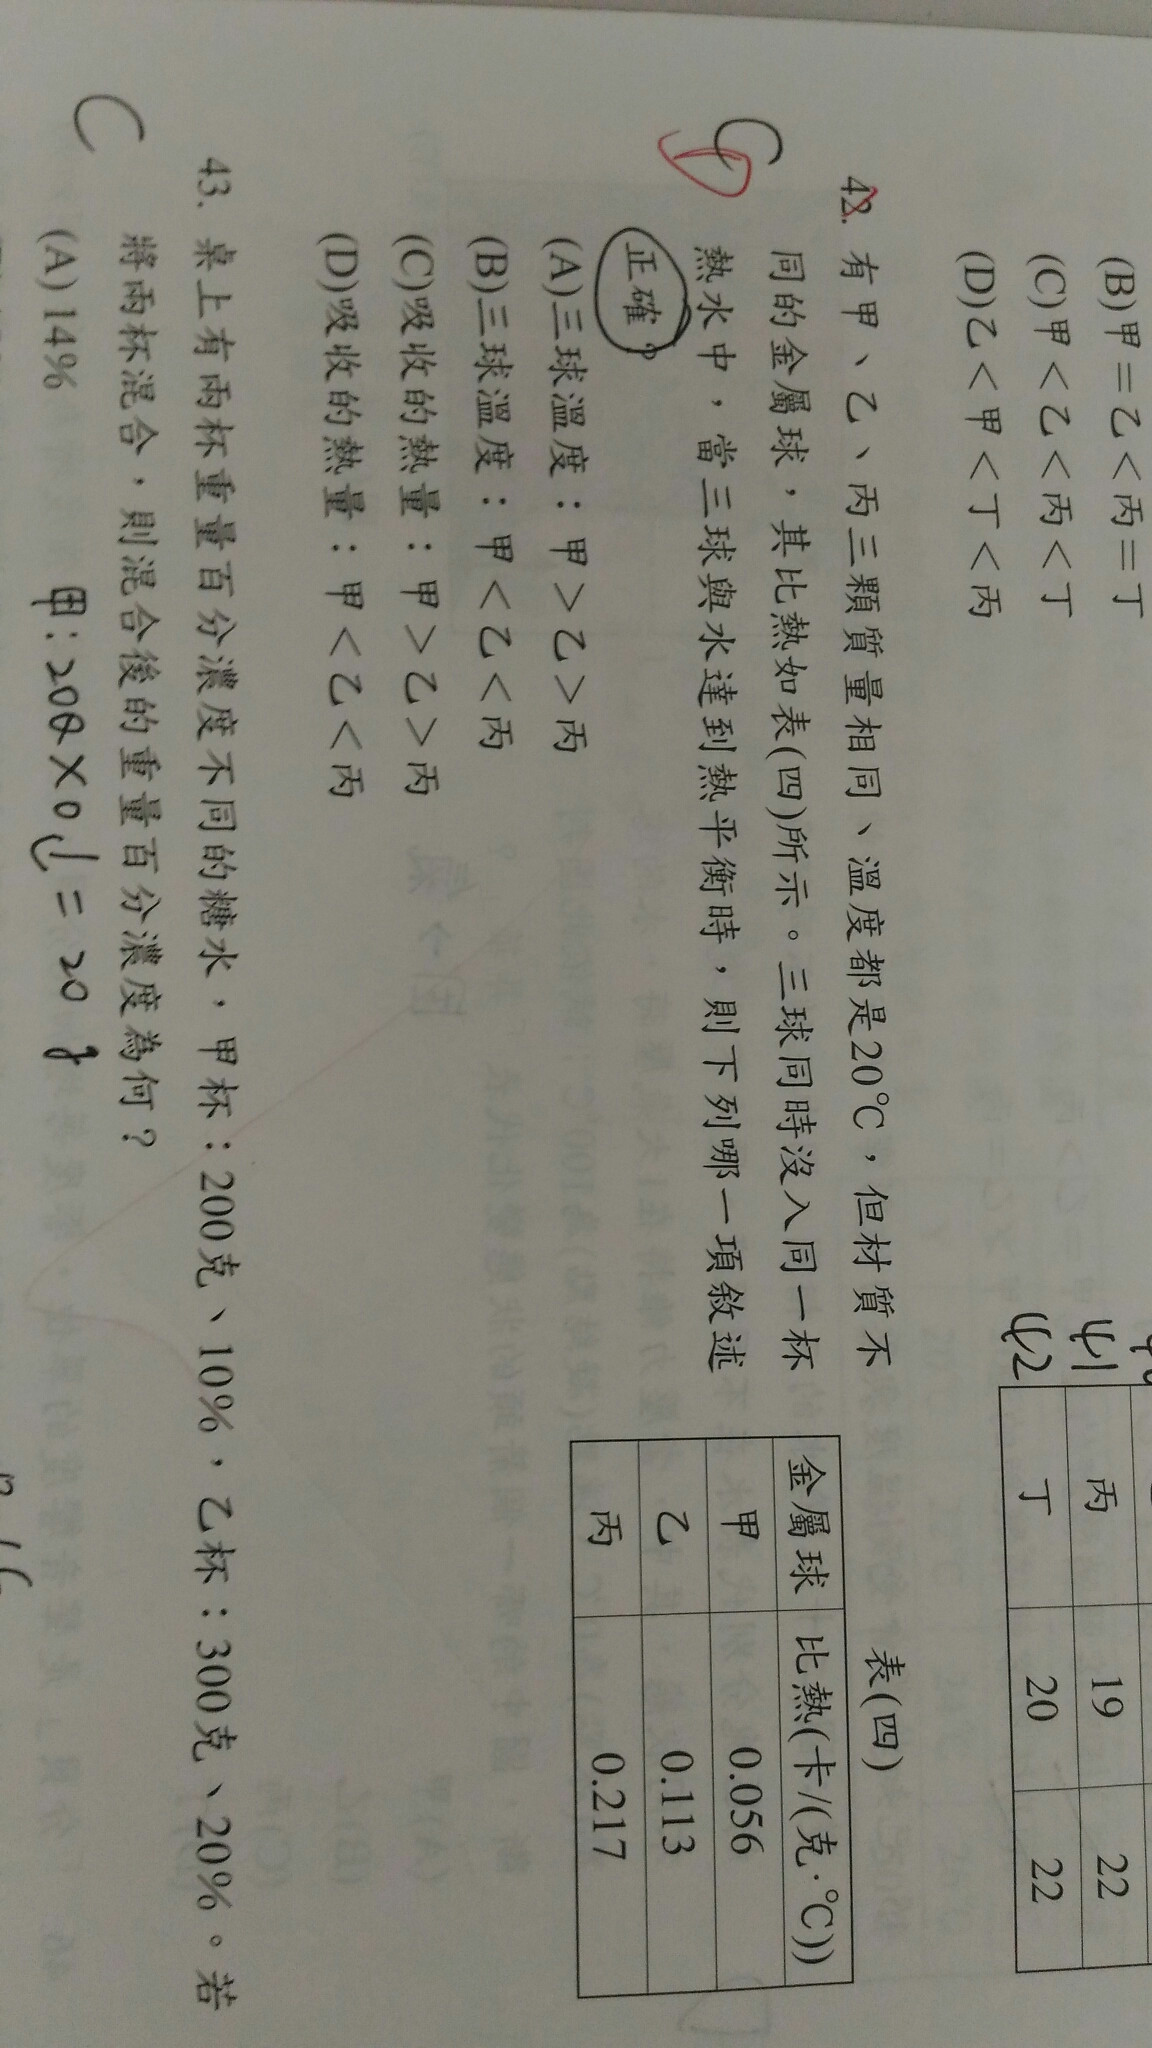 (B)甲=乙<丙=丁
(C)甲<乙<丙<丁
(D)乙<甲<丁<丙
41 丙 19 22
42 丁 20 22
C D
42. 有甲、乙、丙三顆質量相同、溫度都是20℃,但材質不
同的金屬球,其比熱如表(四)所示。三球同時沒入同一杯
熱水中,當三球與水達到熱平衡時,則下列哪一項敘述
正確?
(A)三球溫度:甲>乙>丙
(B)三球溫度:甲<乙<丙
(C)吸收的熱量:甲>乙>丙
(D)吸收的熱量:甲<乙<丙
表(四)
金屬球 比熱(卡/(克·℃))
甲 0.056
乙 0.113
丙 0.217
C
43. 桌上有兩杯重量百分濃度不同的糖水,甲杯:200克、10%,乙杯:300克、20%。若
將兩杯混合,則混合後的重量百分濃度為何?
(A)14%
甲:200×0.1=20g